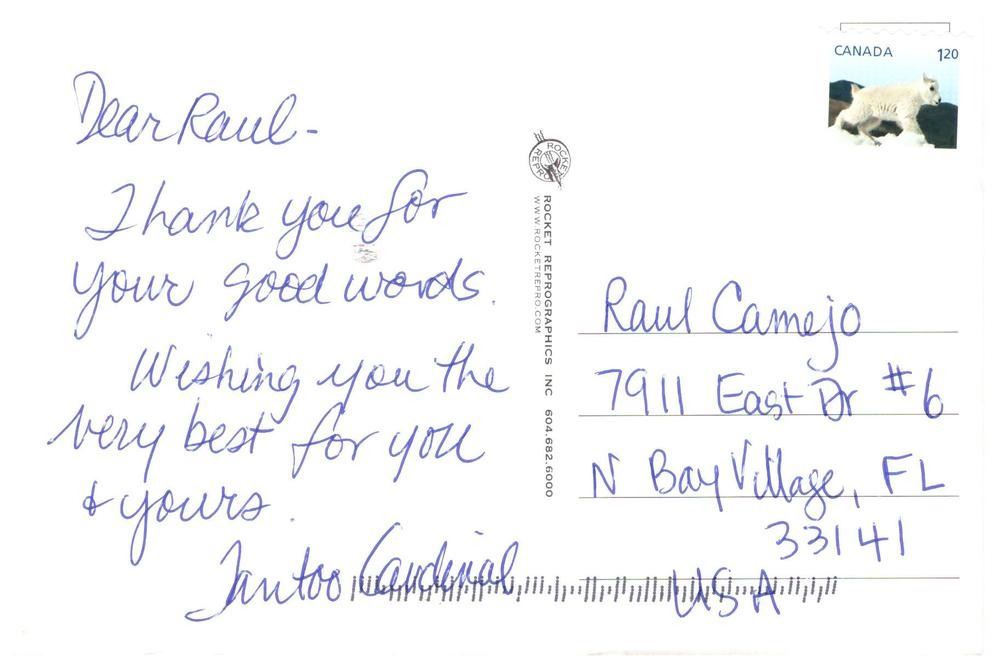 CANADA 120
Dear Raul-
Thank you for
your good words.
Wishing you the
very best for you
& yours.
Tantoo Cardinal
ROCKET REPRO
ROCKET REPROGRAPHICS INC 604.682.6000
WWW.ROCKETREPRO.COM
Raul Camejo
7911 East Dr #6
N Bay Village, FL
33141
USA